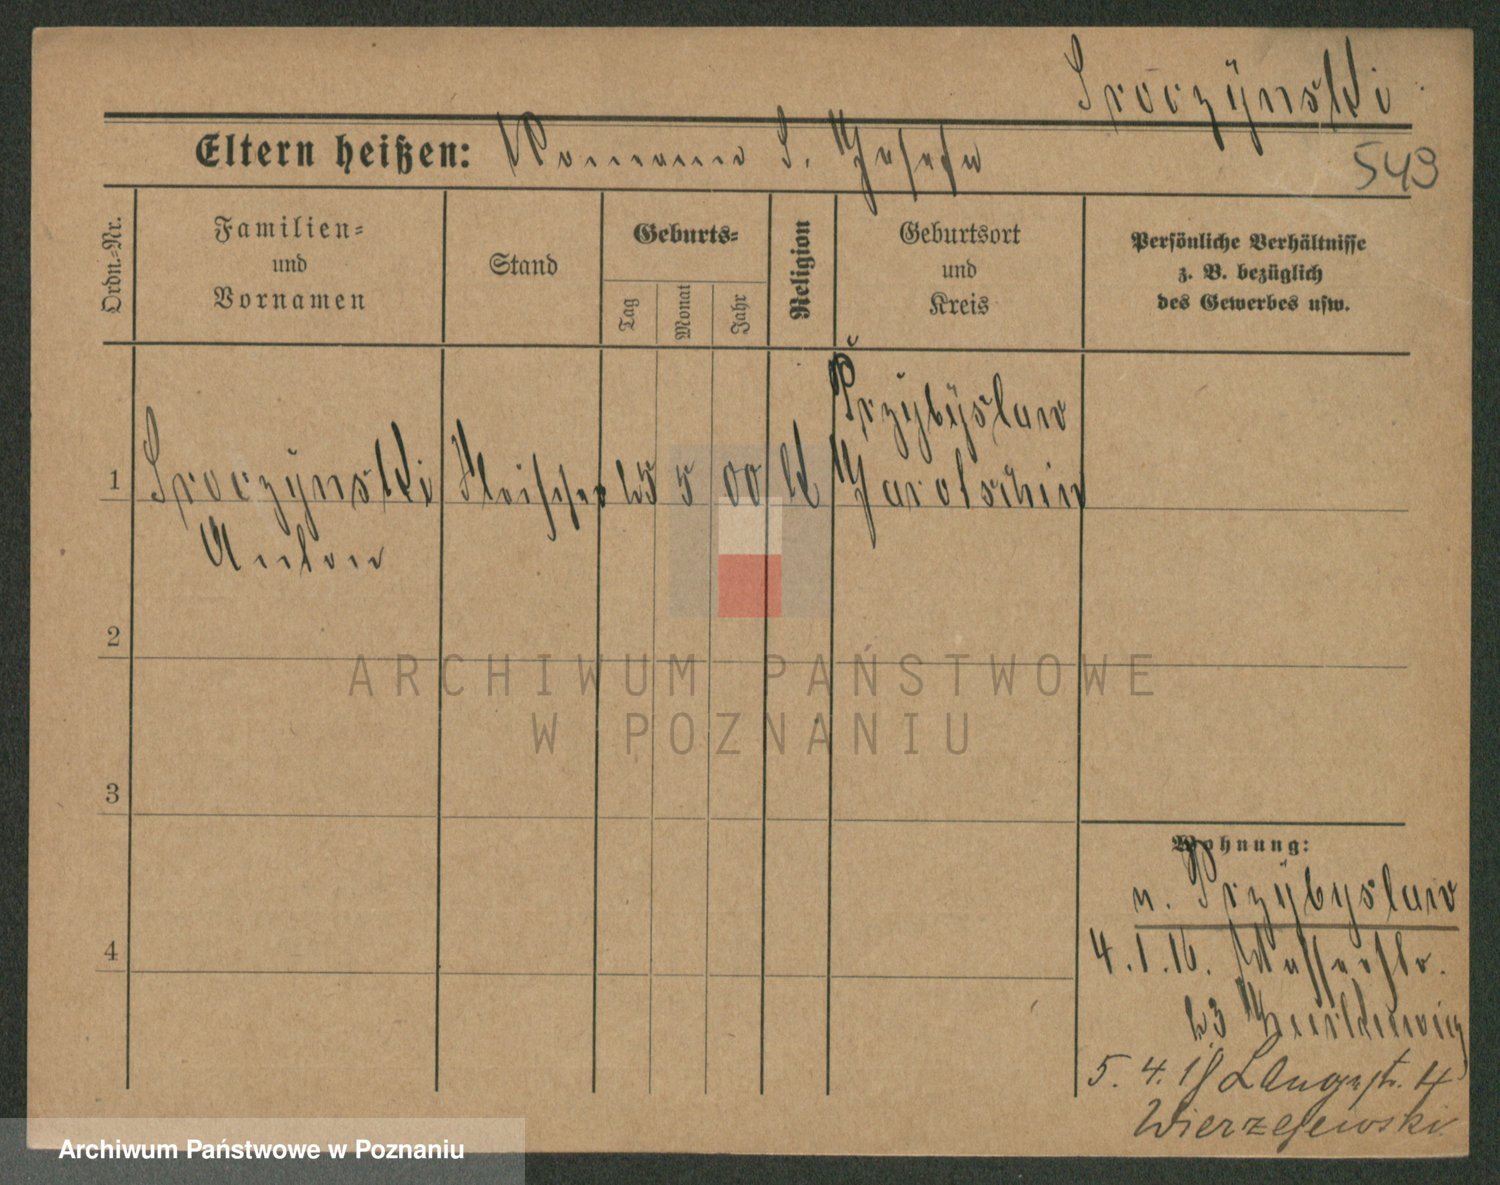 Sroczynski
Eltern heißen: Roman u. Josefa
543
Ordn.-Nr.
Familien-
und
Vornamen
Stand
Geburts-
Tag
Monat
Jahr
Religion
Geburtsort
und
Kreis
Persönliche Verhältnisse
z. B. bezüglich
des Gewerbes usw.
Przybyslaw
1 Sroczynski Fleischer 25 5 00 k Jarotschin
Anton
2
3
4
ARCHIWUM PAŃSTWOWE
W POZNANIU
Wohnung:
n. Przybyslaw
4.1.16. Wasserstr.
23
5. 4. 18 Langestr. 4
Wierzejewski
Archiwum Państwowe w Poznaniu